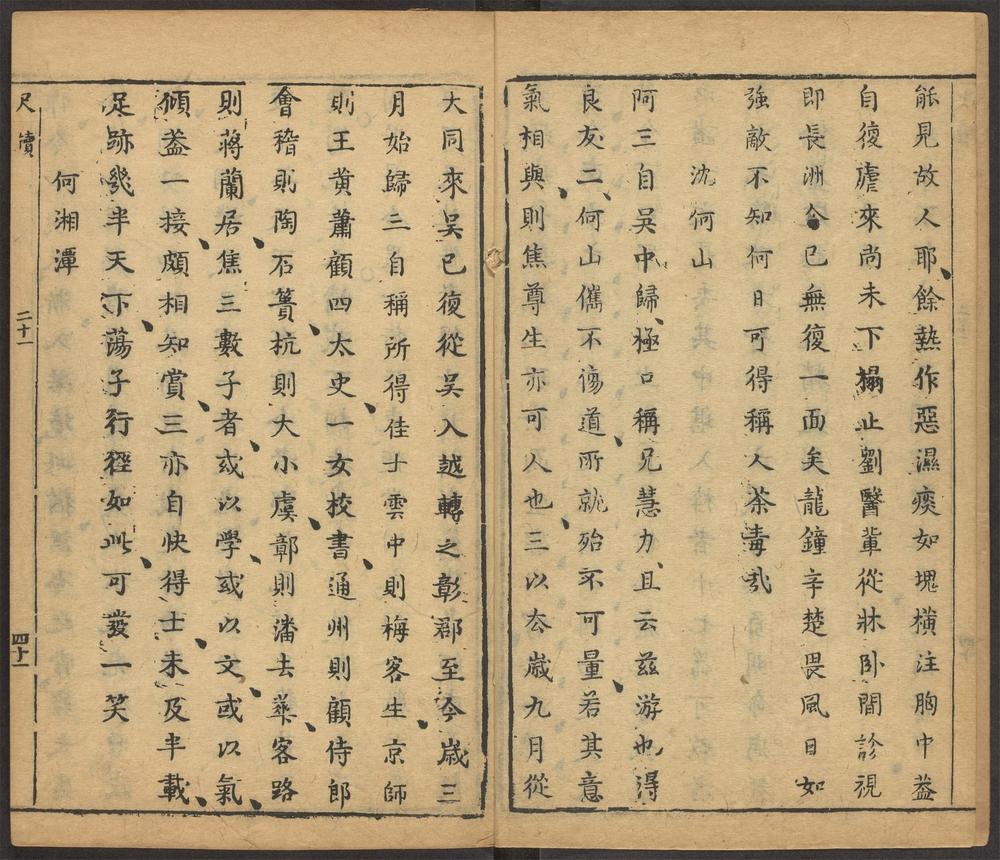 能見故人耶餘熱作惡濕痰如塊橫注胸中益
自復瘧來尚未下榻止劉醫輩從牀卧間診視
即長洲令已無復一面矣龍鐘字楚畏風日如
強敵不知何日可得稱人荼毒哉
沈何山
阿三自吳中歸極口稱兄慧力且云茲游也得
良友二何山儁不傷道所就殆不可量若其意
氣相與則焦尊生亦可人也三以去歲九月從
大同來吳已復從吳入越轉之彰郡至今歲三
月始歸三自稱所得佳士雲中則梅客生京師
則王黄蕭顧四太史一女校書通州則顧侍郎
會稽則陶石簣杭則大小虞鄣則潘去華客路
則蔣蘭居焦三數子者或以學或以文或以氣
傾蓋一接頗相知賞三亦自快得士未及半載
足跡幾半天下蕩子行徑如此可發一笑
何湘潭
尺牘
二十一
四十一